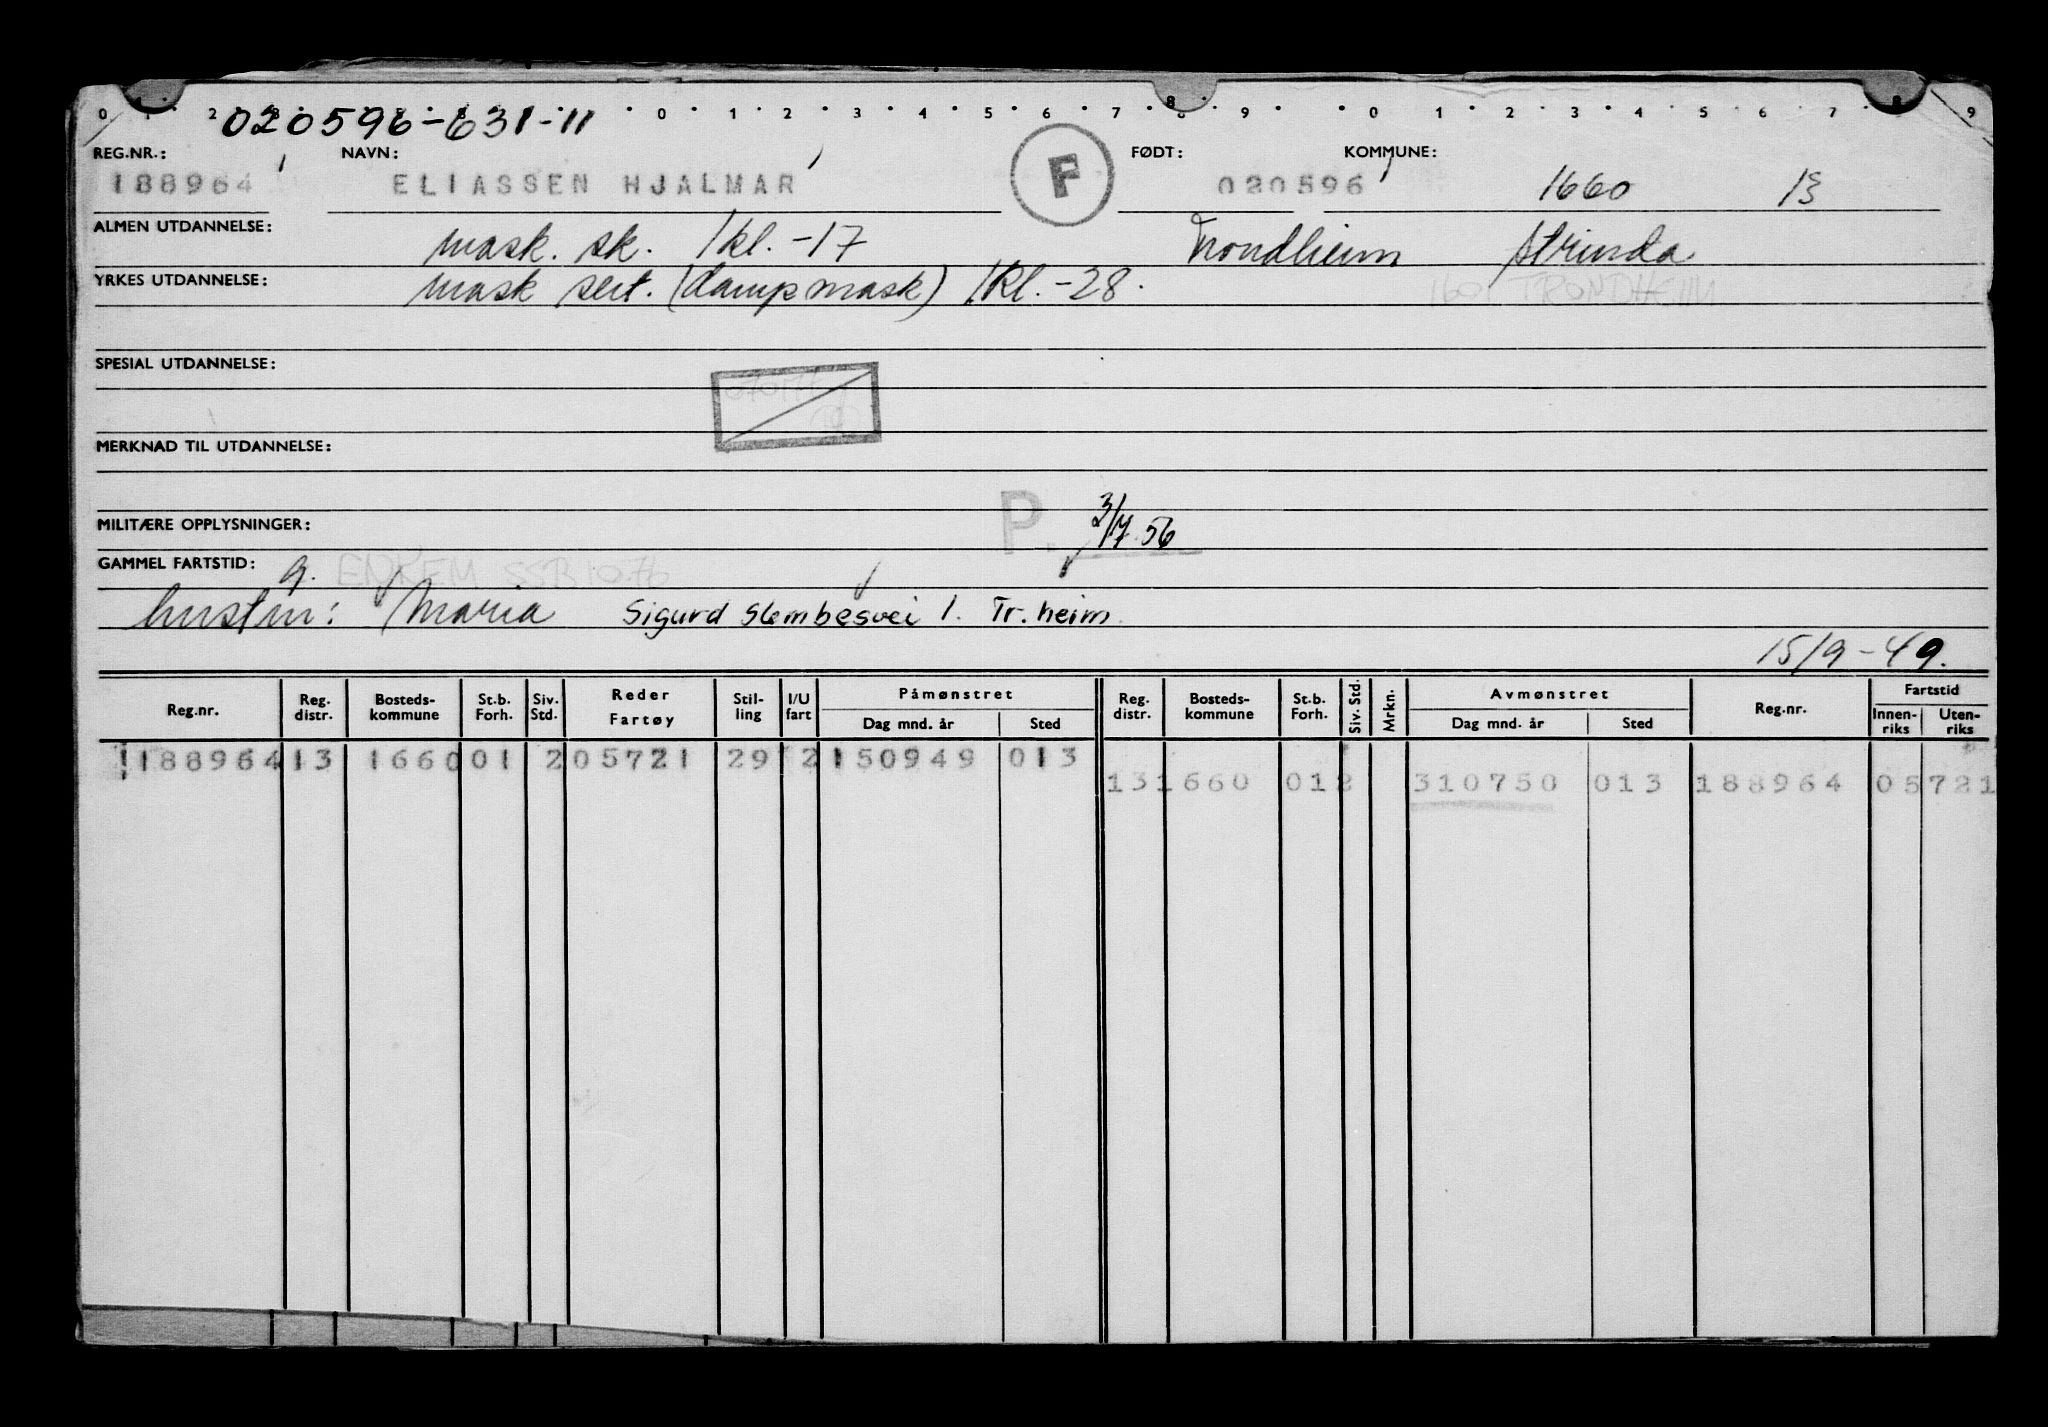 0 1 2 0 1 2 3 4 5 6 7 8 9 0 1 2 3 4 5 6 7 8 9
020596-631-11
REG.NR.: NAVN: FØDT: KOMMUNE:
188964 ELIASSEN HJALMAR F 020596 1660 13
ALMEN UTDANNELSE: mask. sk. 1kl.-17 Trondheim Strinda
YRKES UTDANNELSE: mask sert. (dampmask) 1kl.-28. 1601 TRONDHEIM
SPESIAL UTDANNELSE:
MERKNAD TIL UTDANNELSE:
MILITÆRE OPPLYSNINGER: P. 3/7.56
GAMMEL FARTSTID: g. SSB 10.76
hustru: Maria Sigurd Slembesvei 1. Tr.heim.
15/9-49.
Reg.nr. Reg. distr. Bosteds-kommune St.b. Forh. Siv. Std. Reder Fartøy Stil-ling I/U fart Påmønstret Dag mnd. år Sted Reg. distr. Bosteds-kommune St.b. Forh. Siv. Std. Mrkn. Avmønstret Dag mnd. år Sted Reg.nr. Fartstid Innen-riks Uten-riks
188964 13 1660 01 2 05721 29 2 150949 013
13 1660 01 2 310750 013 188964 05721